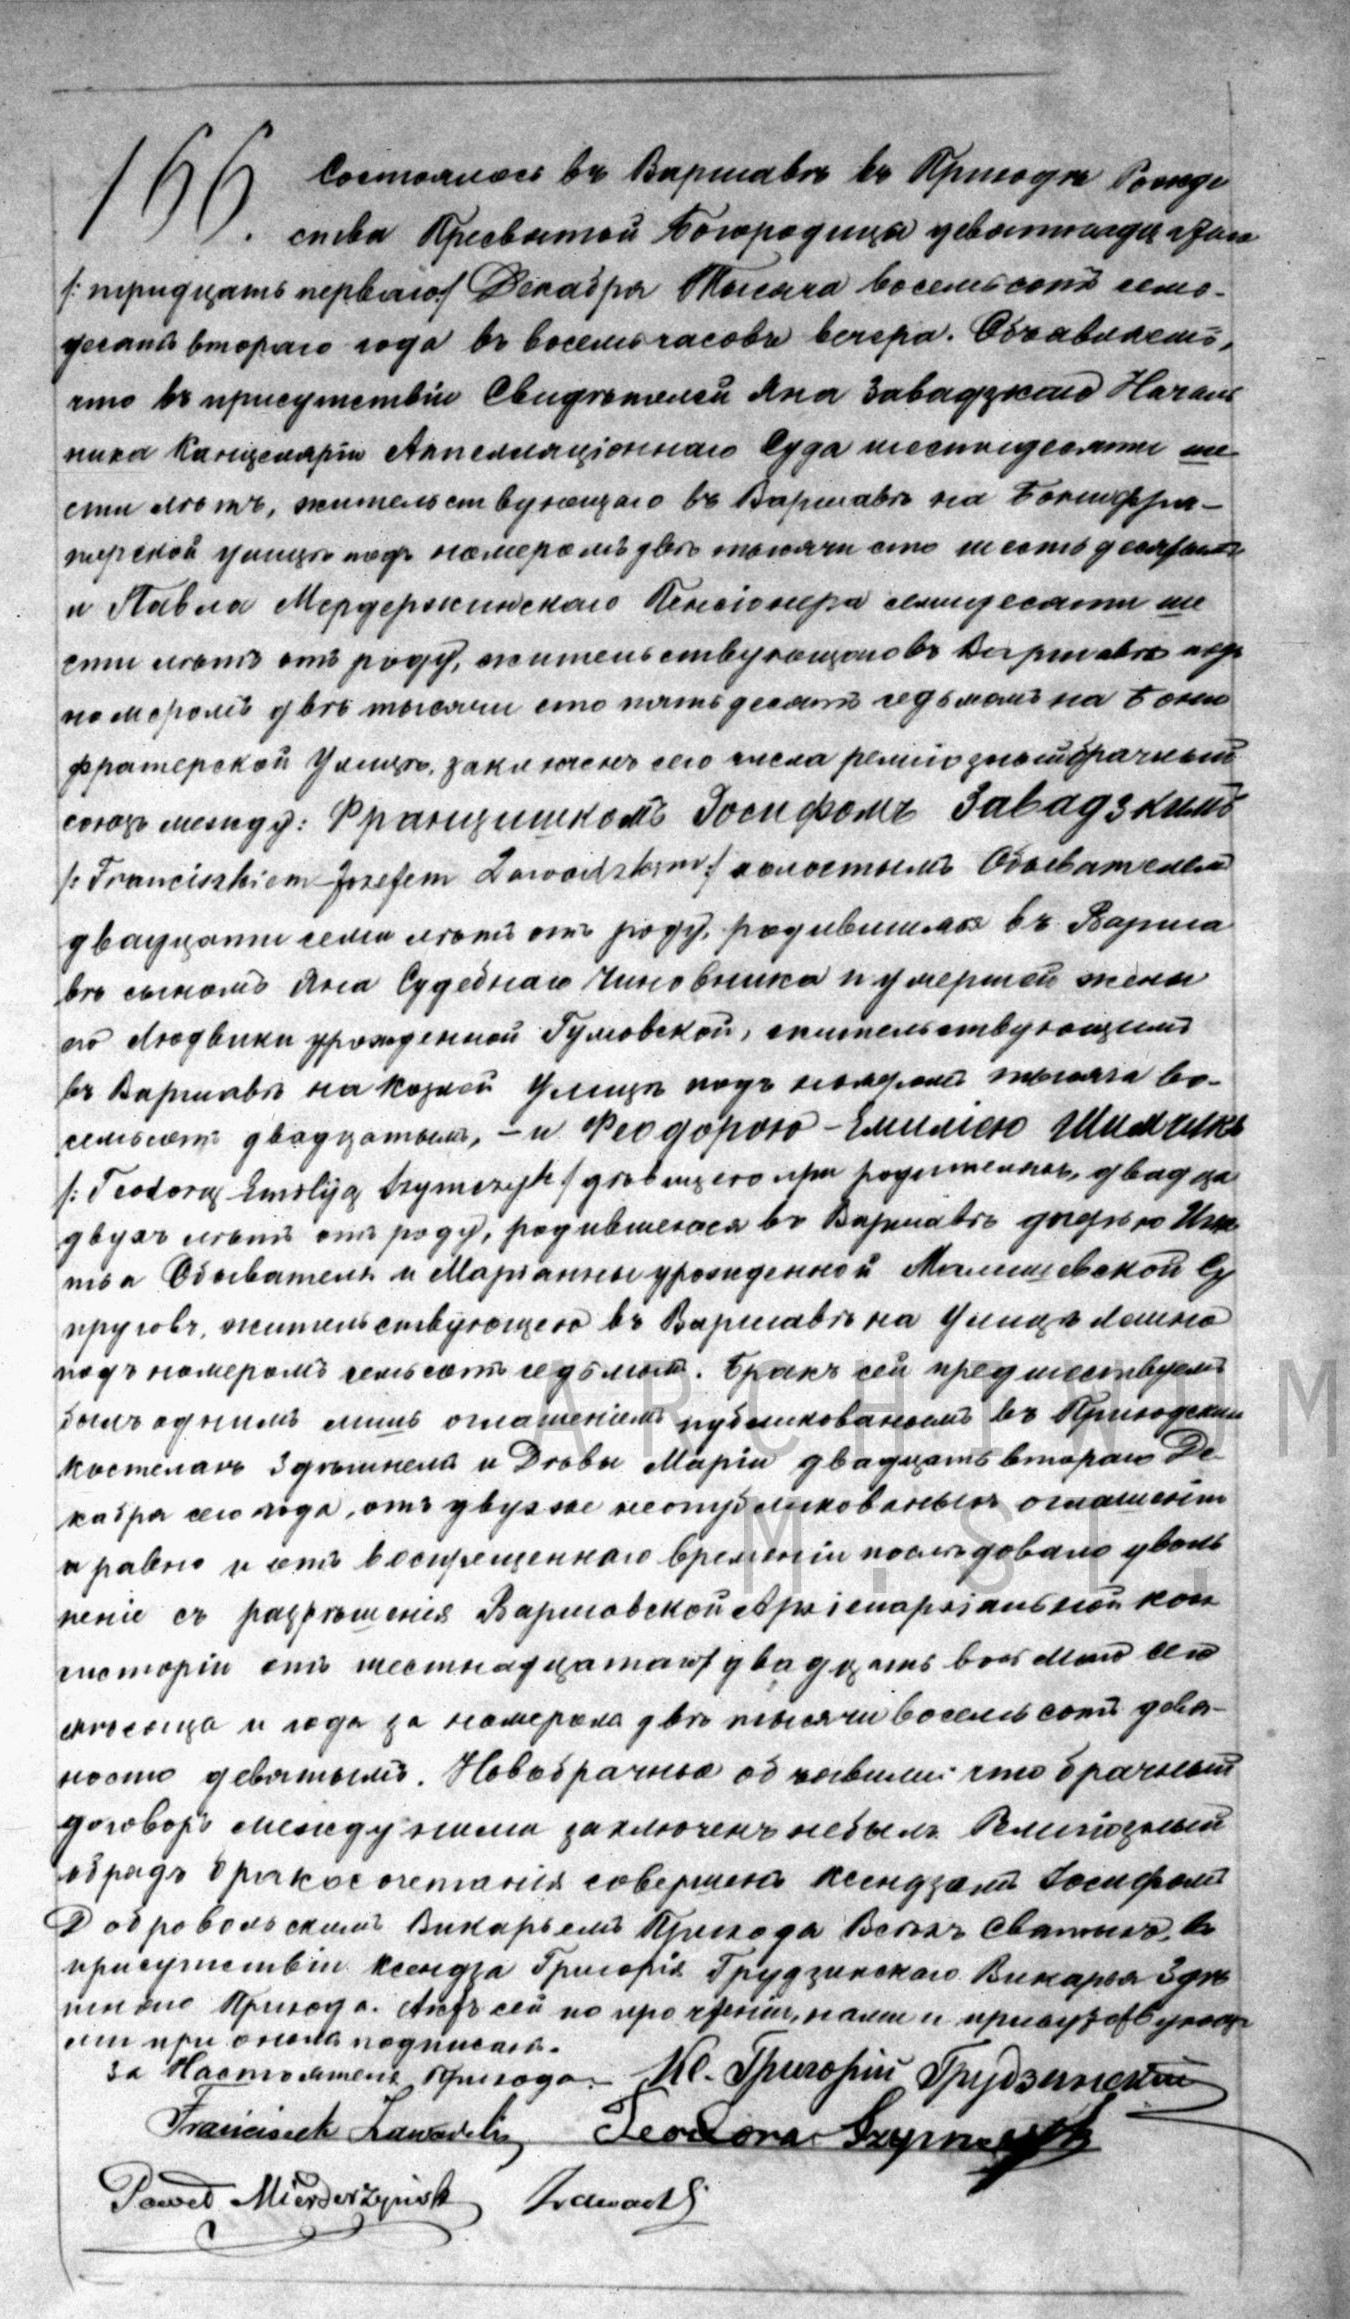 166. Состоялось въ Варшавѣ въ Приходѣ Рожде
ства Пресвятой Богородицы девятнадцатаго
/: тридцать перваго :/ Декабря Тысяча восемьсотъ семь-
десятъ втораго года въ восемь часовъ вечера. Объявляемъ,
что въ присутствіи Свидѣтелей Яна Завадзкаго Началь
ника Канцеляріи Аппелляціоннаго Суда шестидесяти ше
сти лѣтъ, жительствующаго въ Варшавѣ на Бонифра-
терской улицѣ подъ номеромъ двѣ тысячи сто шестьдесятъ
и Павла Мердержинскаго Пенсіонера семидесяти ше
сти лѣтъ отъ роду, жительствующаго въ Варшавѣ подъ
номеромъ двѣ тысячи сто пятьдесятъ седьмомъ на Бони
фратерской Улицѣ, заключенъ сего числа религіозный брачный
союзъ между: Францишкомъ Іосифомъ Завадзкимъ
/: Franciszkiem Józefem Zawadzkim :/ холостымъ Обывателемъ
двадцати семи лѣтъ отъ роду, родившимся въ Варша
вѣ сыномъ Яна Судебнаго Чиновника и умершей жены
его Людвики урожденной Гумовской, жительствующимъ
въ Варшавѣ на Козлей Улицѣ подъ номеромъ тысяча во-
семьсотъ двадцатымъ, - и Феодорою - Емиліею Шимчикъ
/: Teodorą Emilyą Szymczyk / дѣвицею при родителяхъ, двадца
двухъ лѣтъ отъ роду, родившеюся въ Варшавѣ дочерью Игна
тія Обывателя и Маріанны урожденной Малишевской Су
пруговъ, жительствующею въ Варшавѣ на Улицѣ Лешно
подъ номеромъ семьсотъ седьмымъ. Бракъ сей предшествуемъ
былъ однимъ лишь оглашеніемъ публикованнымъ въ Приходскихъ
костелахъ Здѣшнемъ и Дѣвы Маріи двадцать втораго Де-
кабря сего года, отъ двухъ же неопубликованныхъ оглашеній
и равно и отъ воспрещеннаго времени послѣдовало уволь
неніе съ разрѣшенія Варшавской Архіепархіальной кон
систоріи отъ шестнадцатаго / двадцать восьмаго сего
мѣсяца и года за номеромъ двѣ тысячи восемьсотъ девя-
носто девятымъ. Новобрачные объявили что брачный
договоръ между ними заключенъ небылъ. Религіозный
обрядъ бракосочетанія совершенъ ксендзомъ Іосифомъ
Добровольскимъ Викарьемъ Прихода Всѣхъ Святыхъ, въ
присутствіи ксендза Григорія Грудзинскаго Викарья Здѣ
шняго Прихода. Актъ сей по прочтеніи, нами и присутствующи
ми при ономъ подписанъ.
За Настоятеля Прихода. - Кс. Григорій Грудзинскій
Franciszek Zawadzki Teodora Szymczyk
Paweł Mierderzyński Zawadzki
ARCHIWUM
M. ST.